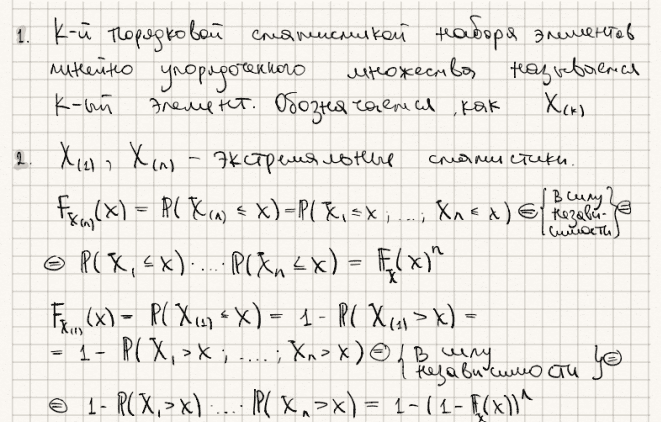 1. К-й порядковой статистикой набора элементов
линейно упорядоченного множества называется
К-ый элемент. Обозначается, как X₍ₖ₎
2. X₍₁₎, X₍ₙ₎ – экстремальные статистики.
F_{X₍ₙ₎}(x) = ℙ(X₍ₙ₎ ≤ x) = ℙ(X₁ ≤ x; ...; Xₙ ≤ x) ⊜ {В силу независимости} ⊜
⊜ ℙ(X₁ ≤ x) · ... · ℙ(Xₙ ≤ x) = F_X(x)ⁿ
F_{X₍₁₎}(x) = ℙ(X₍₁₎ ≤ x) = 1 - ℙ(X₍₁₎ > x) =
= 1 - ℙ(X₁ > x; ....; Xₙ > x) ⊜ {В силу независимости} ⊜
⊜ 1 - ℙ(X₁ > x) · ... · ℙ(Xₙ > x) = 1 - (1 - F_X(x))ⁿ